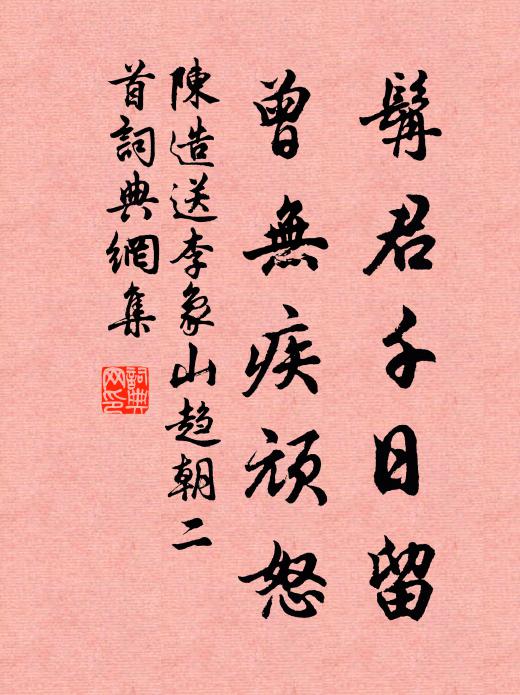 髯君千日留
曾無疾頑怒
陳造送李象山趋朝二
首詞典網集
詞典網印